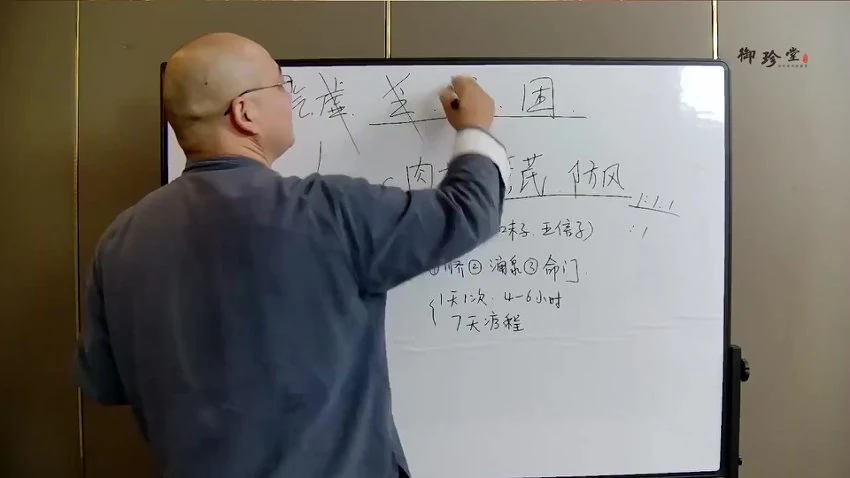 御珍堂
气虚 困
肉 芪 防风
1:1:1
味子 五倍子)
:1
脐② 涌泉③命门
1天1次 4-6小时
7天疗程